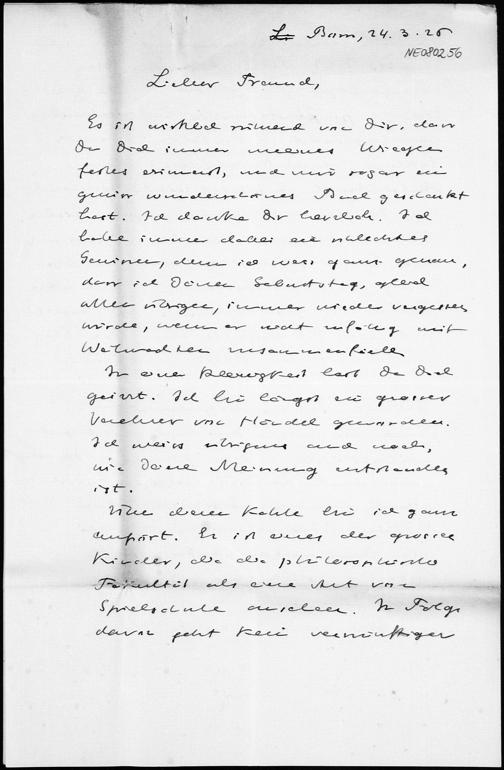 Bonn, 24.3.26
NE080256
Lieber Freund,
Es ist wirklich rührend von Dir, dass
Du Dich immer meines Wiegen
festes erinnerst, und mir sogar ein
gewiss wunderschönes Buch geschenkt
hast. Ich danke Dir herzlich. Ich
habe immer dabei ein schlechtes
Gewissen, denn ich weiss ganz genau,
dass ich Deinen Geburtstag, gleich
allen übrigen, immer wieder vergessen
würde, wenn er nicht zufällig mit
Weihnachten zusammenfiele
In einer Kleinigkeit hast Du Dich
geirrt. Ich bin längst ein grosser
Verehrer von Händel geworden.
Ich weiss übrigens auch noch,
wie Deine Meinung entstanden
ist.
Über den Kahle bin ich ganz
empört. Er ist eines der grossen
Kinder, die die philosophische
Fakultät als eine Art von
Spielschule ansehen. In Folge
davon geht kein vernünftiger